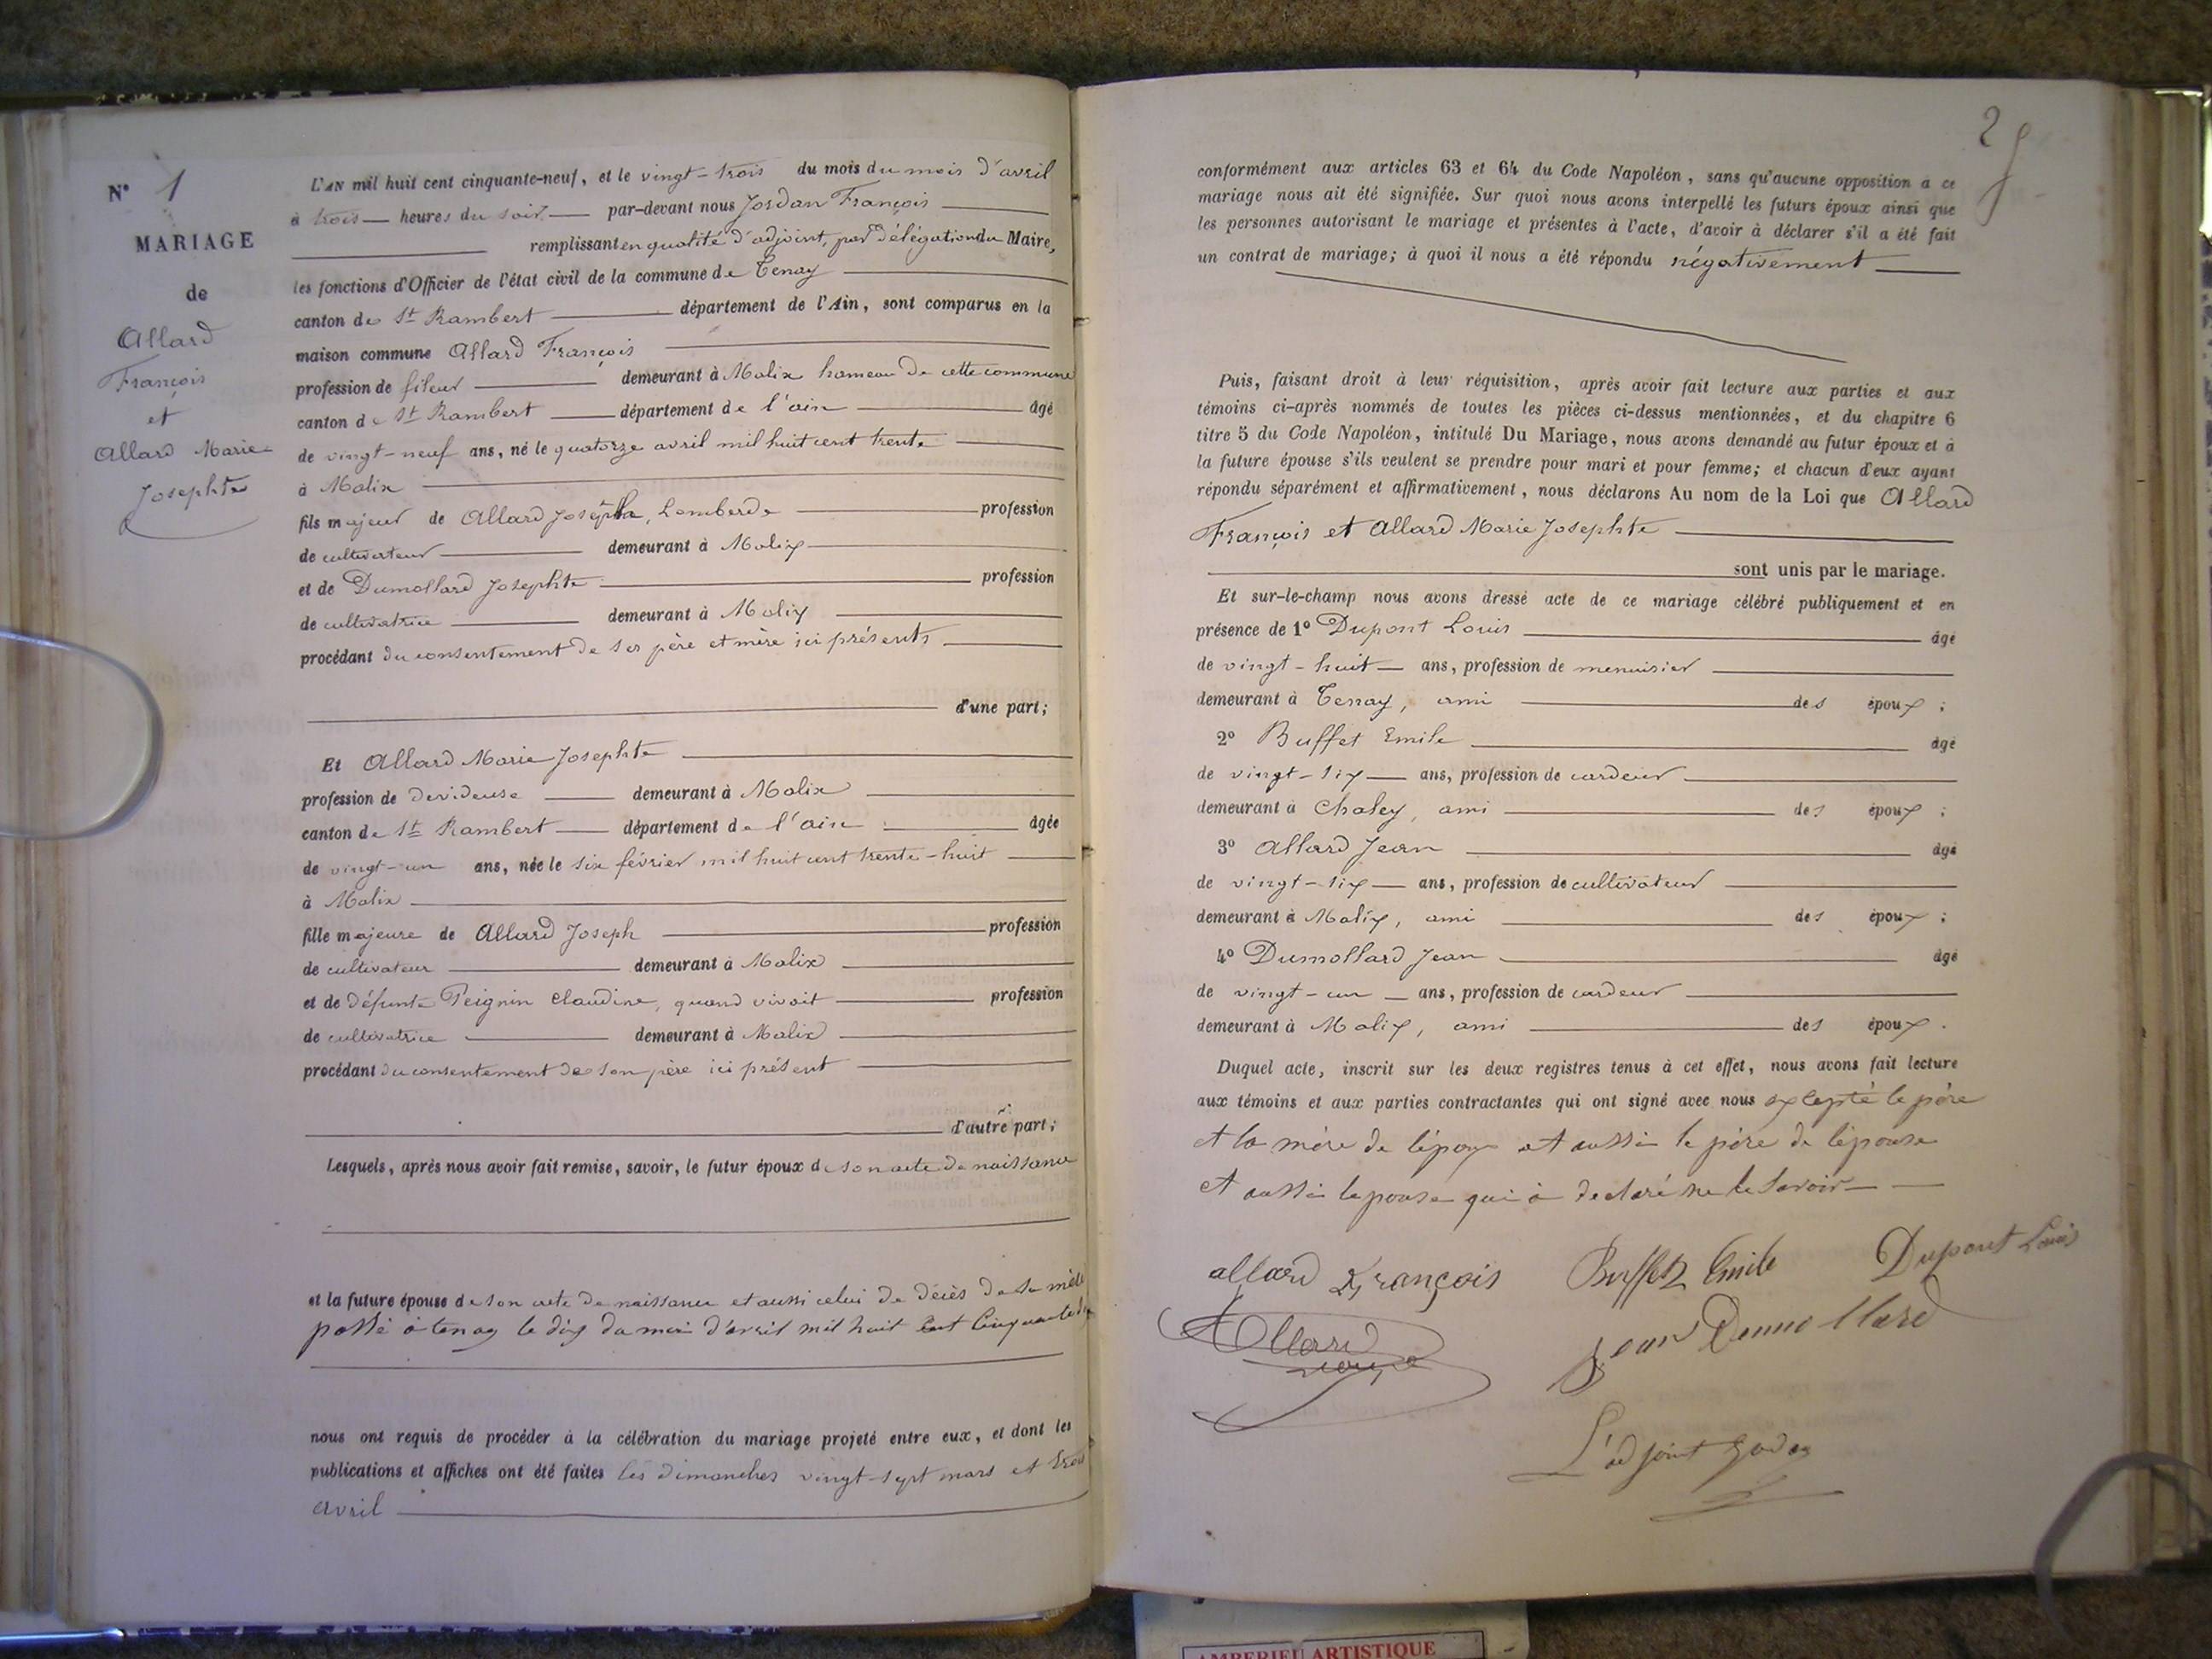 N° 1
MARIAGE
de
Allard
François
et
Allard Marie
Josephte
L'AN mil huit cent cinquante-neuf, et le vingt-trois du mois du mois d'avril
à trois heures du soir par-devant nous Jordan François
remplissant en qualité d'adjoint, par délégation du Maire,
les fonctions d'Officier de l'état civil de la commune de Tenay
canton de St Rambert département de l'Ain, sont comparus en la
maison commune Allard François
profession de fileur demeurant à Malix hameau de cette commune
canton de St Rambert département de l'ain âgé
de vingt-neuf ans, né le quatorze avril mil huit cent trente
à Malix
fils majeur de Allard Joseph, Lomberde profession
de cultivateur demeurant à Malix
et de Dumollard Josephte profession
de cultivatrice demeurant à Malix
procédant du consentement de ses père et mère ici présents
d'une part;
Et Allard Marie Josephte
profession de devideuse demeurant à Malix
canton de St Rambert département de l'ain âgée
de vingt-un ans, née le six février mil huit cent trente-huit
à Malix
fille majeure de Allard Joseph profession
de cultivateur demeurant à Malix
et de défunte Peignin Claudine, quand vivait profession
de cultivatrice demeurant à Malix
procédant du consentement de son père ici présent
d'autre part;
Lesquels, après nous avoir fait remise, savoir, le futur époux de son acte de naissance
et la future épouse de son acte de naissance et aussi celui de décès de sa mère
passé à tenay le dix du moi d'avril mil huit cent cinquante
nous ont requis de procéder à la célébration du mariage projeté entre eux, et dont les
publications et affiches ont été faites les dimanches vingt-sept mars et trois
avril
2
conformément aux articles 63 et 64 du Code Napoléon, sans qu'aucune opposition a ce
mariage nous ait été signifiée. Sur quoi nous avons interpellé les futurs époux ainsi que
les personnes autorisant le mariage et présentes à l'acte, d'avoir à déclarer s'il a été fait
un contrat de mariage; à quoi il nous a été répondu négativement
Puis, faisant droit à leur réquisition, après avoir fait lecture aux parties et aux
témoins ci-après nommés de toutes les pièces ci-dessus mentionnées, et du chapitre 6
titre 5 du Code Napoléon, intitulé Du Mariage, nous avons demandé au futur époux et à
la future épouse s'ils veulent se prendre pour mari et pour femme; et chacun d'eux ayant
répondu séparément et affirmativement, nous déclarons Au nom de la Loi que Allard
François et Allard Marie Josephte
sont unis par le mariage.
Et sur-le-champ nous avons dressé acte de ce mariage célébré publiquement et en
présence de 1° Dupont Louis âgé
de vingt-huit ans, profession de menuisier
demeurant à Tenay, ami des époux ;
2° Buffet Emile âgé
de vingt-six ans, profession de cardeur
demeurant à Chaley, ami des époux ;
3° Allard Jean âgé
de vingt-six ans, profession de cultivateur
demeurant à Malix, ami des époux ;
4° Dumollard Jean âgé
de vingt-un ans, profession de cardeur
demeurant à Malix, ami des époux.
Duquel acte, inscrit sur les deux registres tenus à cet effet, nous avons fait lecture
aux témoins et aux parties contractantes qui ont signé avec nous excepté le père
et la mère de l'époux et aussi le père de l'épouse
et aussi lepouse qui à declaré ne le savoir
allard François Buffet Emile Dupont Louis
Allard
Jean Dumollard
L'adjoint Jordan
AMBERIEU ARTISTIQUE